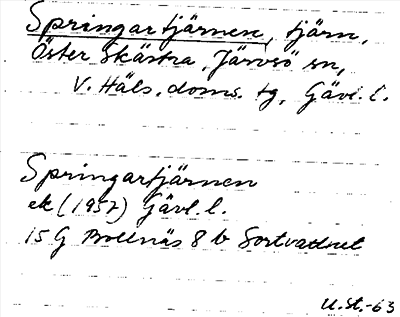 Springartjärnen, tjärn,
Öster Skästra, Järvsö sn,
V. Häls. doms. tg, Gävl. l.
Springartjärnen
ek (1957) Gävl. l.
15 G Bollnäs 8 b
U.St.-63